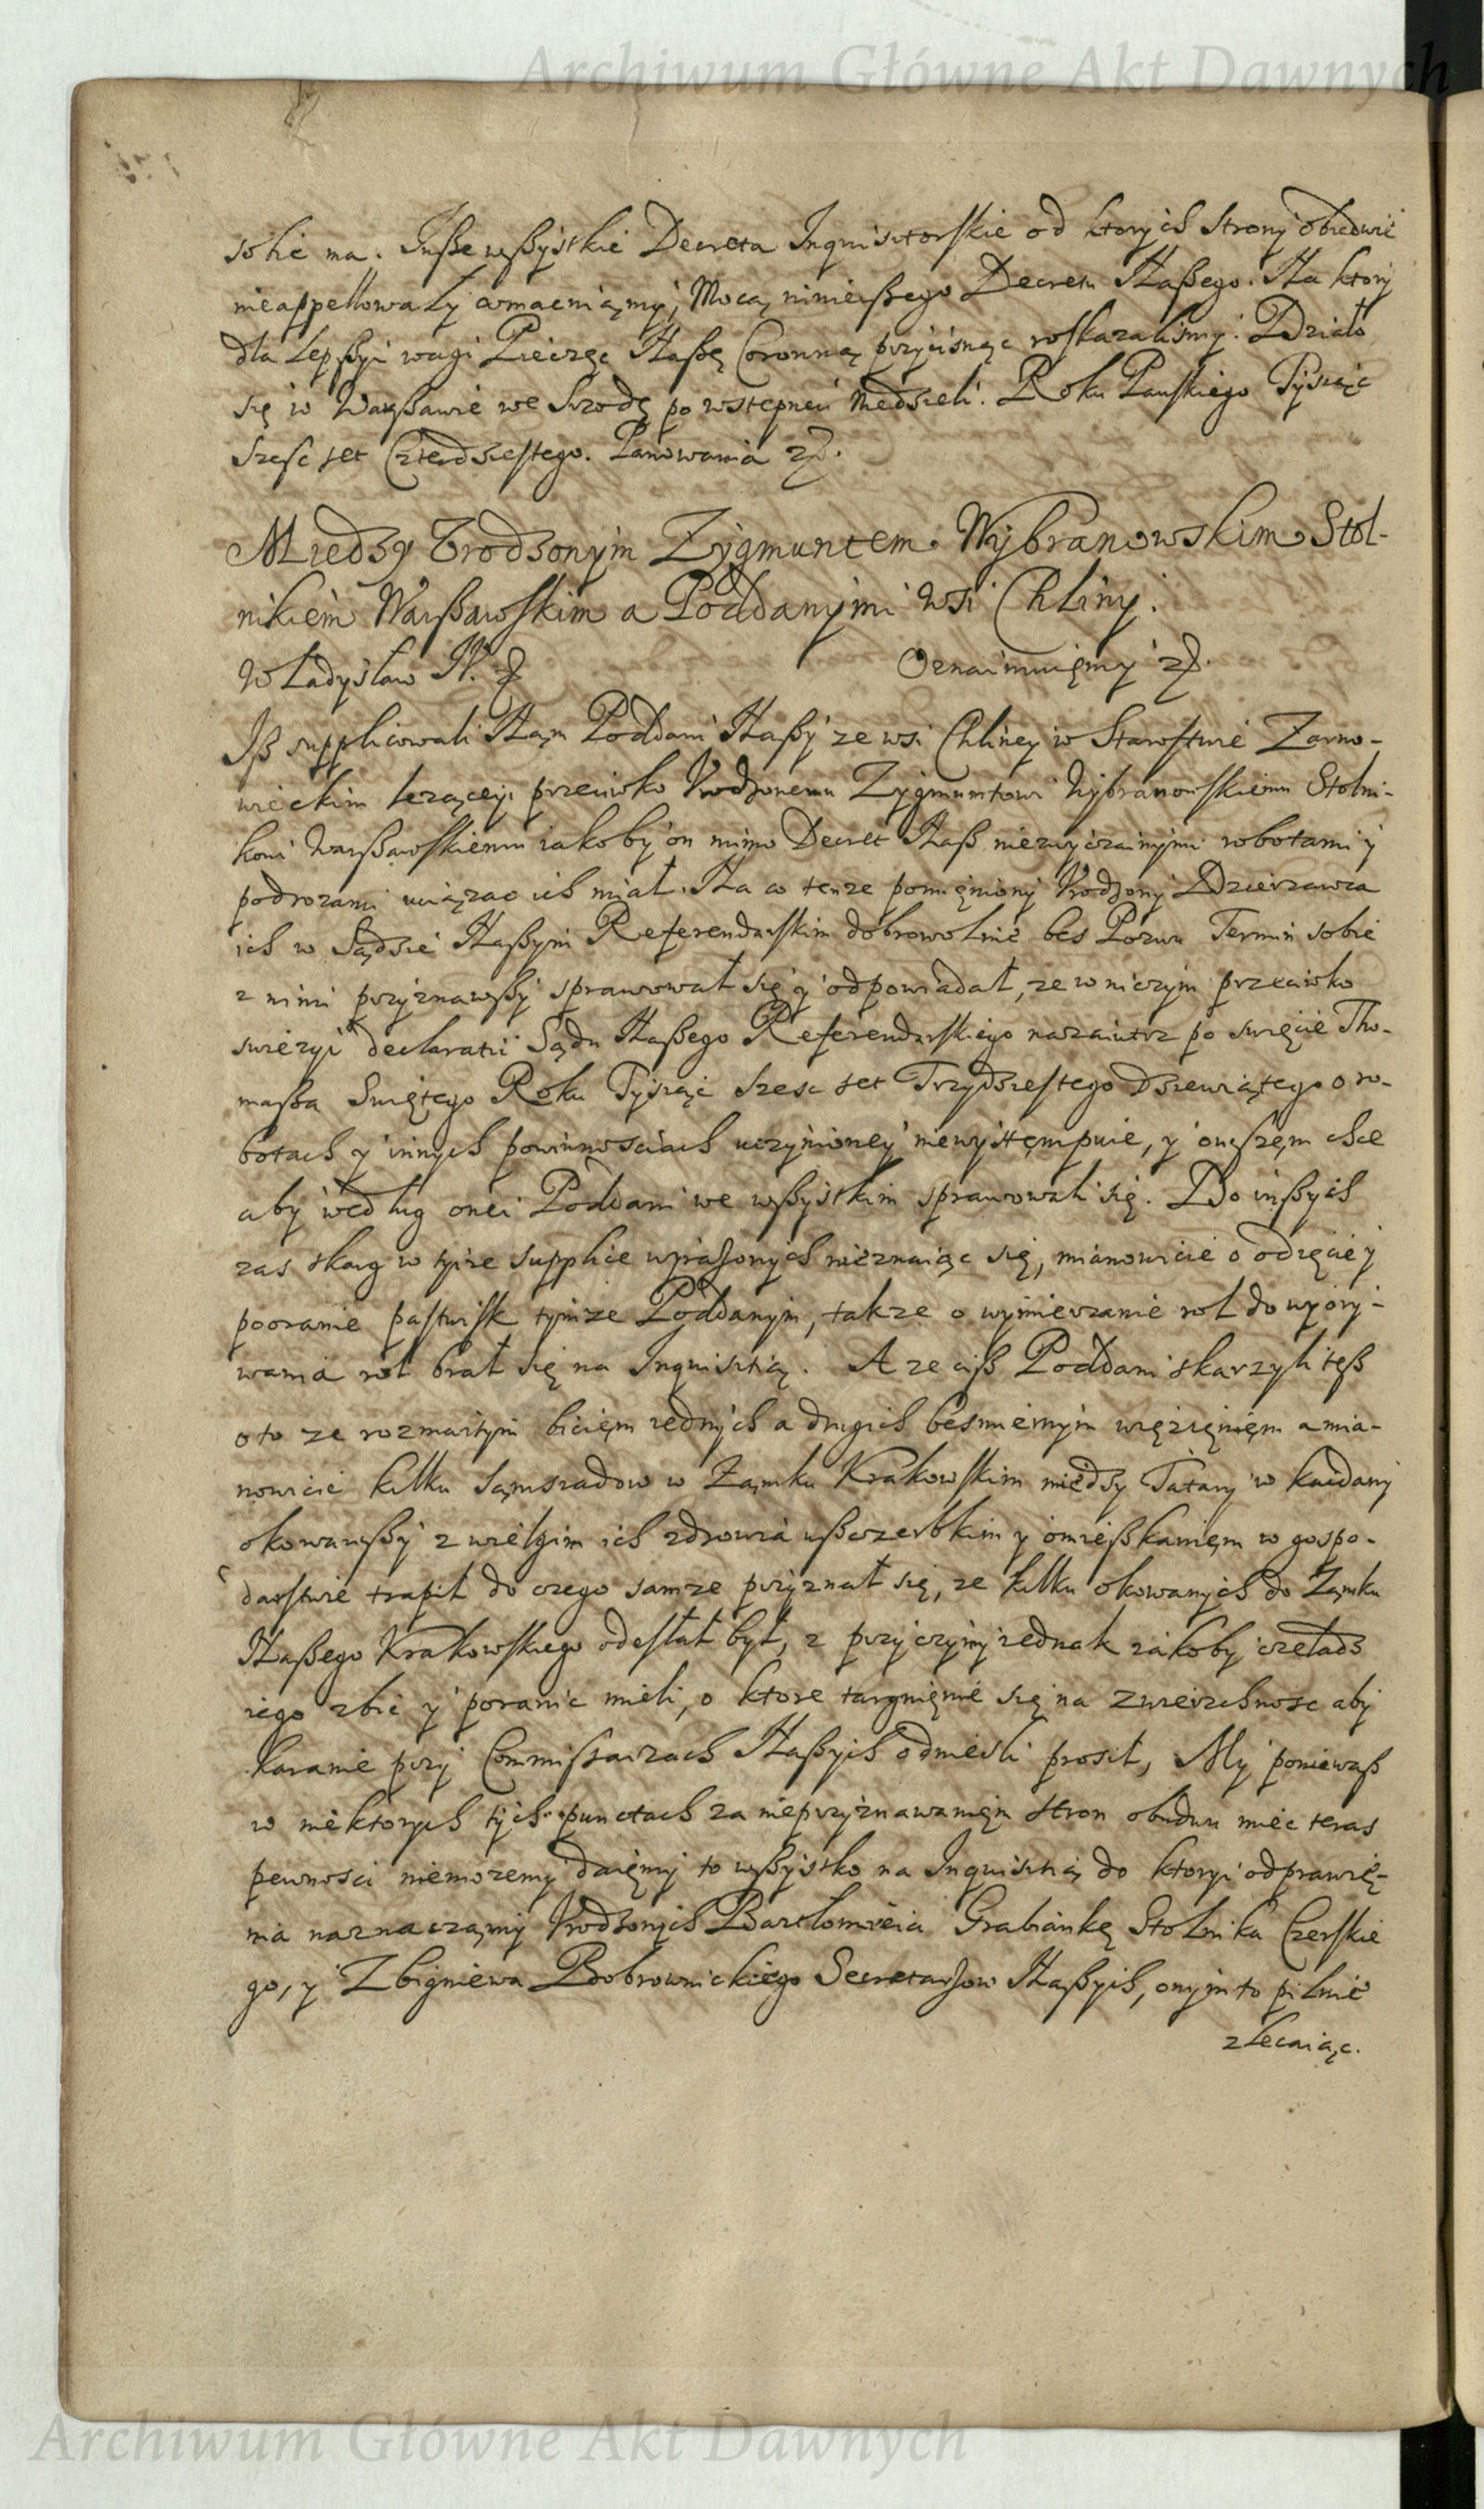 Archiwum Główne Akt Dawnych
sobie ma. Insze wßystkie Decreta Inquisitorskie od ktorych Strony obiedwie
nieappellowały zmacniamy, Mocą ninieißego Decretu Naßego. Na ktory
dla lepßyi wagi Pieczęc Naßę Coronną przycisnąc roskazalismy. Działo
się w Warßawie we Srzodę po wstępnei Niedzieli. Roku Panskiego Tysiąc
Szesc set Czterdziestego. Panowania
Miedzy Vrodzonym Zygmuntem Wybranowskim Stol-
nikiem Warßawskim a Poddanymi wsi Chliny.
Władysław IV. Oznaimuięmy
Iß supplicowali Nąm Poddani Naßy ze wsi Chliney w Starostwie Zarno-
wieckim lezącey, przeciwko Vrodzonemu Zygmuntowi Wybranowskiemu Stolni-
kowi Warßawskiemu iakoby on mimo Decret Naß niezwyczainymi robotami y
podrozami uciązac ich miał. Na co tenze pomięniony Vrodzony Dzierzawca
ich w Sądzie Naßym Referendarskim dobrowolnie bes Pozwu Termin sobie
z nimi przyznawßy sprawował się y odpowiadał, ze w niczym przeciwko
swiezyi declaratii Sądu Naßego Referendarskiego nazaiutrz po swięcie Tho-
maßa Swiętego Roku Tysiąc Szesc set Trzydziestego Dziewiątego o ro-
botach y innych powinnosciach uczynioney niewystęmpuie, y owszęm chce
aby według onei Poddani we wßystkim sprawowali się. Do inßych
zas skarg w tyize supplice wyrażonych nieznaiąc się, mianowicie o odięcie y
pooranie pastwisk tymze Poddanym, takze o wymierzanie rol do wyory-
wania rol brał się na Inquisitią. A ze ciß Poddani skarzyli teß
o to ze rozmaitym bicięm iednych a drugich besmiernym więzięnięm a mia-
nowicie kilku sąmsiadow w Zamku Krakowskim miedzy Tatary w kaidany
okowawßy z wielgim ich zdrowia ußczerbkim y omießkanięm w gospo-
darstwie trapił do czego samze przyznał się, ze kilku okowanych do Zamku
Naßego Krakowskiego odesłał był, z przyczyny iednak iakoby czeladz
iego zbic y poranic mieli, o ktore targnięnie się na zwierzchnosc aby
karanie przy Commissarzach Naßych odniesli prosił, My poniewaß
w niektorych tych punctach za nieprzyznawanięm stron obudwu miec teras
pewnosci niemozemy daięmy to wßystko na Inquisitią do ktoryi odprawię-
nia naznaczamy Vrodzonych Bartłomieia Grabiankę Stolnika Czerskie
go, y Zbigniewa Bobrownickiego Secretarzow Naßych, onym to pilnie
zlecaiąc.
Archiwum Główne Akt Dawnych